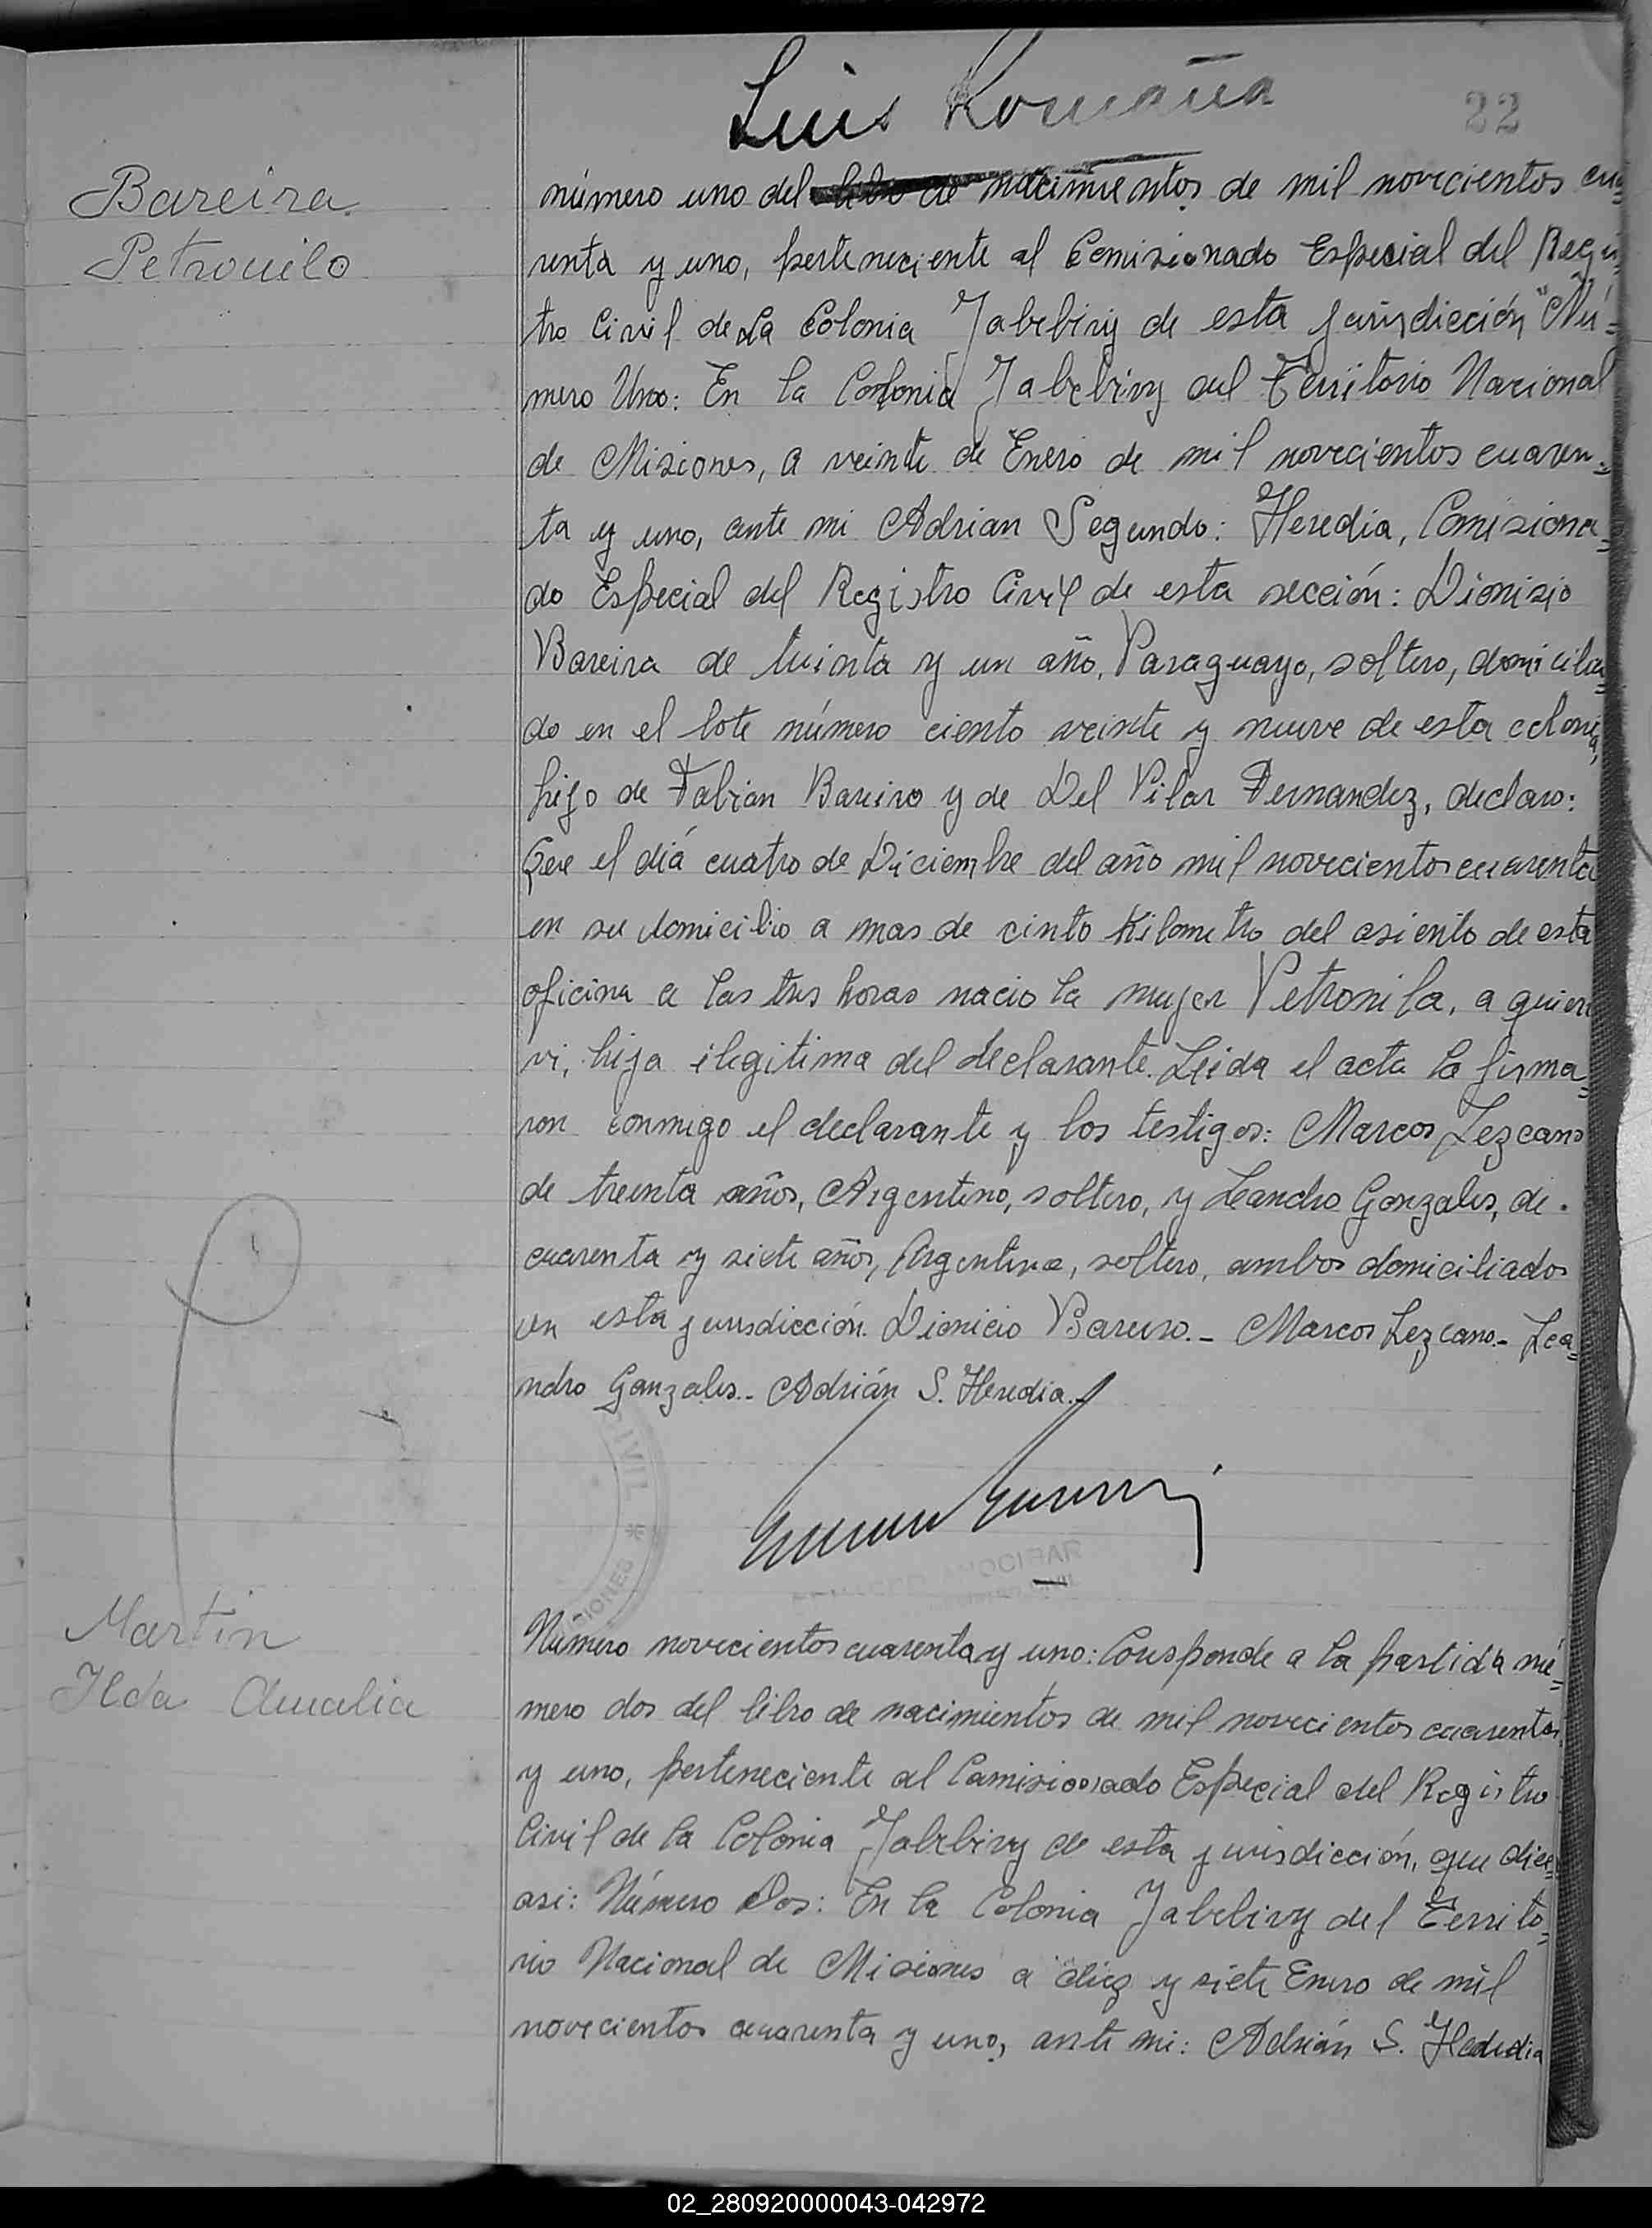 Luis Romaña
22
Bareira
Petronilo
número uno del libro de nacimientos de mil novecientos cua=
renta y uno, perteneciente al Comisionado Especial del Regis=
tro Civil de La Colonia Yabebiry de esta jurisdicción "Nú=
mero Uno: En la Colonia Yabebiry del Territorio Nacional
de Misiones, a veinte de Enero de mil novecientos cuaren=
ta y uno, ante mi Adrian Segundo: Heredia, Comisiona=
do Especial del Registro Civil de esta sección: Dionisio
Bareira de treinta y un año, Paraguayo, soltero, domicilia=
do en el lote número ciento veinte y nueve de esta colonia,
hijo de Fabian Bareiro y de Del Pilar Fernandez, declaro:
Que el diá cuatro de Diciembre del año mil novecientos cuarenta
en su domicilio a mas de cinto Kilometro del asiento de esta
oficina a las tres horas nacio la mujer Petronila, a quien
vi, hija ilegitima del declarante. Leida el acta la firma=
ron conmigo el declarante y los testigos: Marcos Lezcano
de treinta años, Argentino, soltero, y Leandro Gonzales, de
cuarenta y siete años, Argentino, soltero, ambos domiciliados
en esta jurisdicción. Dionicio Bareiro.- Marcos Lezcano.- Lea=
ndro Gonzales.- Adrián S. Heredia.-
IVIL *
SIONES
ANOCIBAR
Martin
Ilda Amalia
Número novecientos cuarenta y uno: Coresponde a la partida nú=
mero dos del libro de nacimientos de mil novecientos cuarenta
y uno, perteneciente al Comisionado Especial del Registro
Civil de la Colonia Yabebiry de esta jurisdicción, que dice
asi: Número Dos: En la Colonia Yabebiry del Territo=
rio Nacional de Misiones a diez y siete Enero de mil
novecientos cuarenta y uno, ante mi: Adrián S. Heredia
02_280920000043-042972